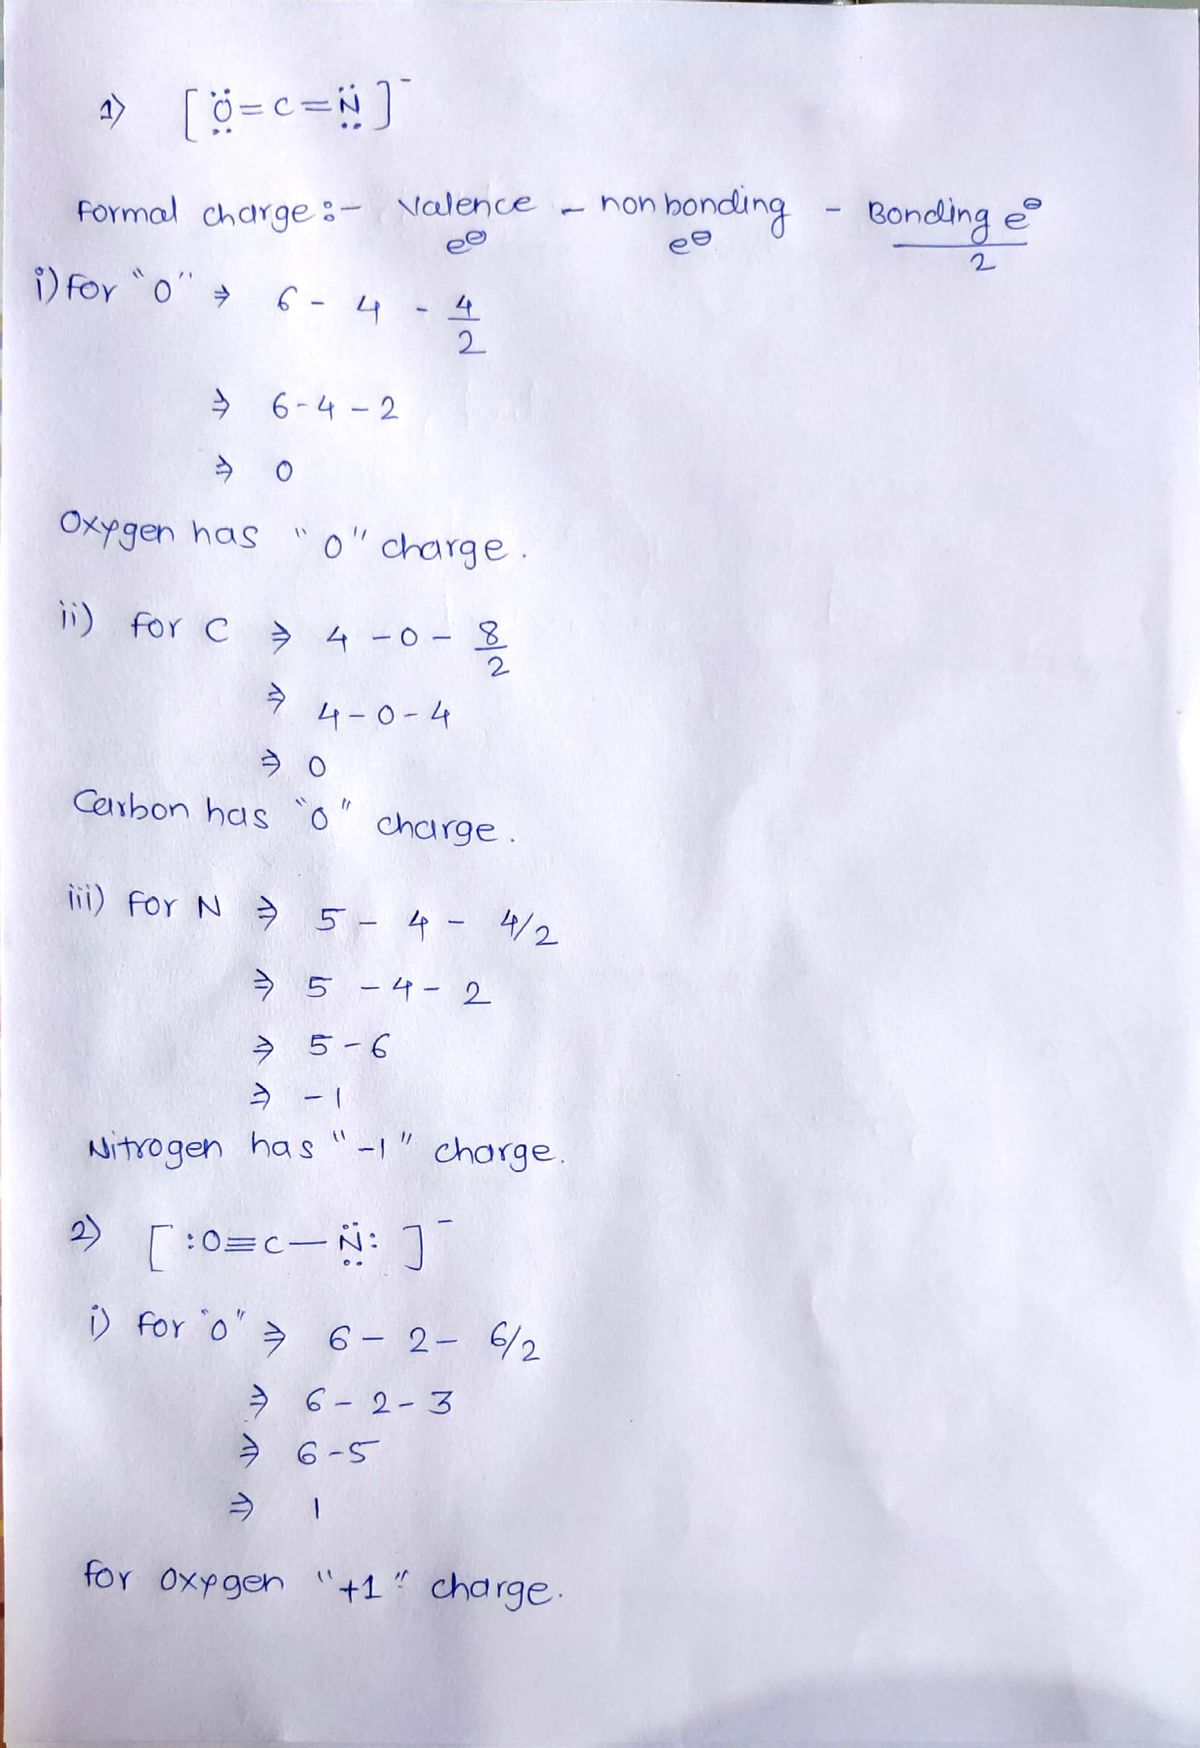 1) [ :Ö=C=N̈: ]⁻
Formal charge :- Valence e⊖ - nonbonding e⊖ - Bonding e⊖/2
i) for "O" ⇒ 6 - 4 - 4/2
⇒ 6-4-2
⇒ 0
Oxygen has "0" charge.
ii) for C ⇒ 4 -0- 8/2
⇒ 4-0-4
⇒ 0
Carbon has "0" charge.
iii) For N ⇒ 5 - 4 - 4/2
⇒ 5 -4- 2
⇒ 5-6
⇒ -1
Nitrogen has "-1" charge.
2) [ :O≡C-N̈: ]⁻
i) For "O" ⇒ 6 - 2 - 6/2
⇒ 6-2-3
⇒ 6-5
⇒ 1
for oxygen "+1" charge.